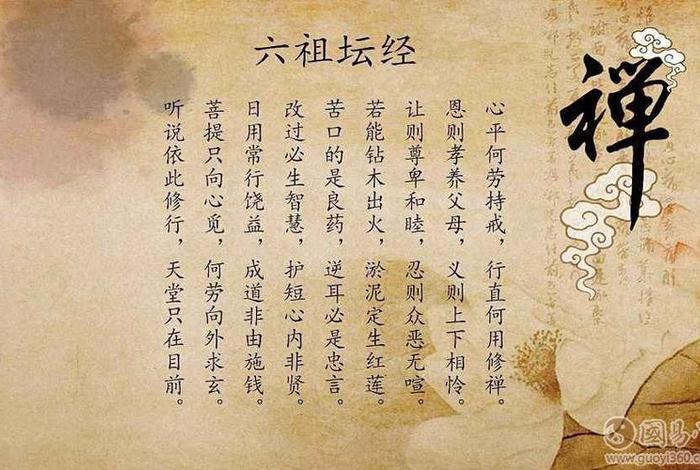 六祖坛经
禅
心平何劳持戒，行直何用修禅。
恩则孝养父母，义则上下相怜。
让则尊卑和睦，忍则众恶无喧。
若能钻木出火，淤泥定生红莲。
苦口的是良药，逆耳必是忠言。
改过必生智慧，护短心内非贤。
日用常行饶益，成道非由施钱。
菩提只向心觅，何劳向外求玄。
听说依此修行，天堂只在目前。
國易
www.guoyi360.com